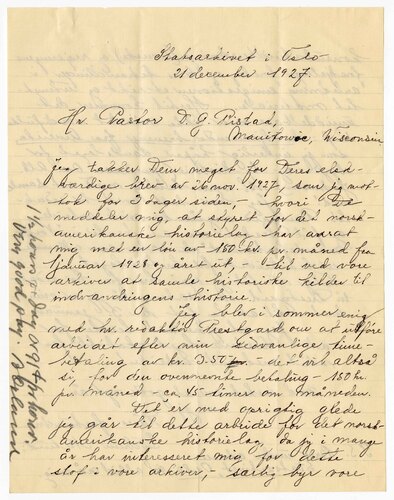 Statsarkivet i Oslo
21 december 1927.
Hr. Pastor D. G. Ristad,
Manitowoc, Wisconsin
Jeg takker Dem meget for Deres elsk-
værdige brev av 26 nov. 1927, som jeg mot-
tok for 3 dager siden, - hvori De
meddeler mig, at styret for det norsk-
amerikanske historielag har ansat
mig med en løn av 150 kr. pr. måned fra
1 januar 1928 og året ut, til ved vore
arkiver at samle historiske kilder til
indvandringens historie.
Jeg blev i sommer enig
med hr. redaktør Prestgard om at utføre
arbeidet efter min sedvanlige time-
betaling av kr. 3.50 - det vil altså
si, for den ovennevnte betaling - 150 kr.
pr. måned - ca. 45 timer om måneden.
Det er med oprigtig glede
jeg går til dette arbeide for det norsk-
amerikanske historielag, da jeg i mange
år har interesseret mig for dette
stof i vore arkiver, - særlig byr vore
1½ hours a day
Very good pay.